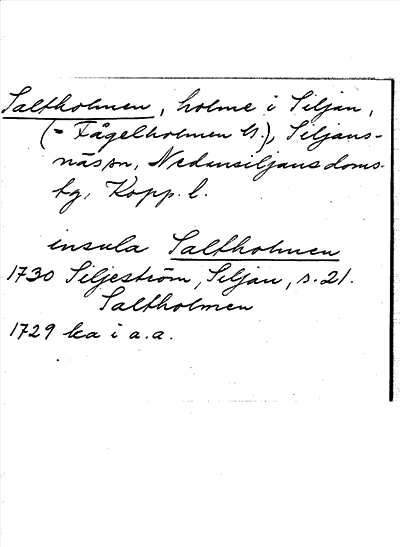 Saltholmen, holme i Siljan,
(= Fågelholmen U.), Siljans-
näs sn, Nedansiljans doms-
ky, Kopp. l.
insula Saltholmen
1730 Siljeström, Siljan, s. 21.
Saltholmen
1729 ka i a.a.